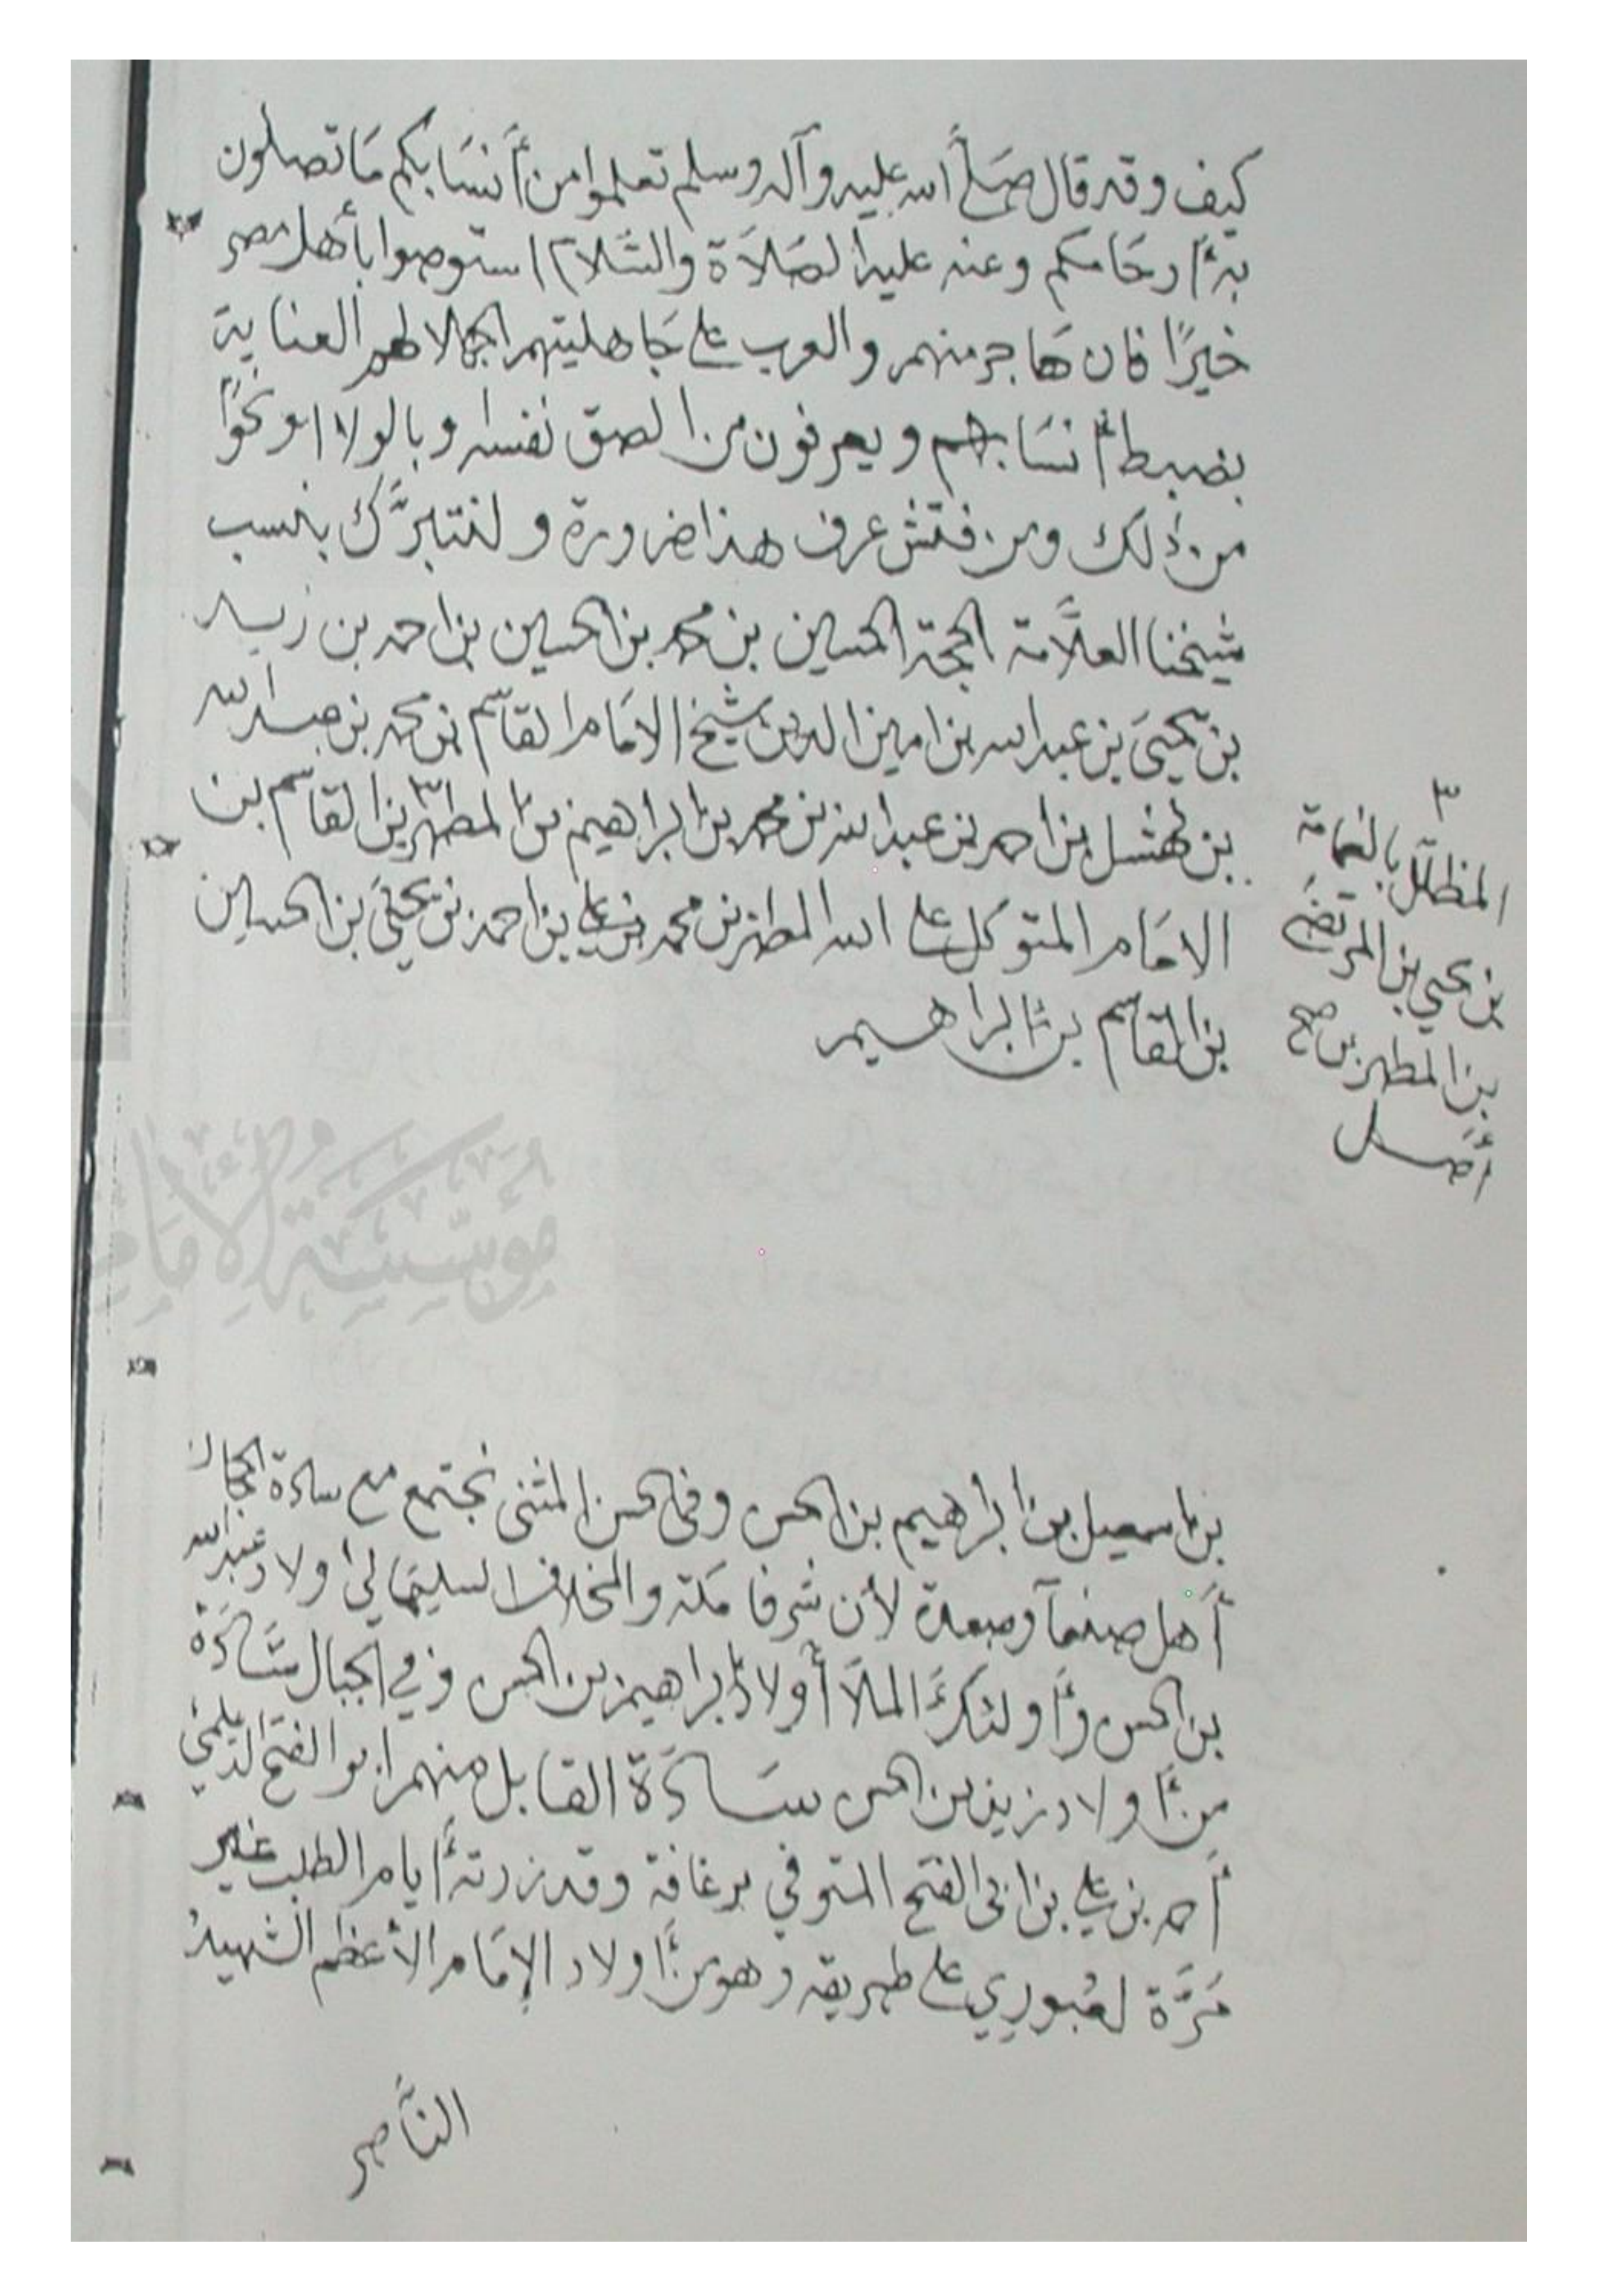 كيف وقد قال صلى الله عليه وآله وسلم تعلموا من أنسابكم ما تصلون
به أرحامكم وعنه عليه الصلاة والسلام استوصوا بأهل مصر
خيرًا فان هاجر منهم والعرب على جاهليتهم الجهلا لهم العناية
بضبط أنسابهم ويعرفون من الصق نفسه وبالولا او نحوًا
من ذلك ومن فتش عرف هذا ضرورة ولنتبرَّك بنسب
شيخنا العلَّامة الحجة الحسين بن محمد بن الحسين بن احمد بن زيد
بن يحيى بن عبد الله بن امين الدين شيخ الامام القاسم بن محمد بن عبد الله
بن نهشل بن احمد بن عبد الله بن محمد بن ابراهيم بن المطهر ٣ بن القاسم بن
الامام المتوكل على الله المطهر بن محمد بن علي بن احمد بن يحيى بن الحسين
بن القاسم بن ابراهيم
٣
المظلّل بالغمامة
بن يحيى بن المرتضى
بن المطهر بن صح
أصل
مؤسسة الإمام
بن اسمعيل بن ابراهيم بن الحسن وفي الحسن المثنى نجتمع مع سادة الحجاز
أهل صنعآ وصعدة لأن شرفا مكة والمخلاف السليماني أولاد عبد الله
بن الحسن وأولئك الملأ أولاد ابراهيم بن الحسن وفي الجبال سَادَة
من أولاد زيد بن الحسن سَادَة القابل منهم ابو الفتح الديلمي
أحمد بن علي بن ابي الفتح المتوفي برغافة وقد زرته أيام الطلب غير
مَرَّة لعُبوري على طريقه وهو من أولاد الإمام الأعظم الشهيد
الناصر